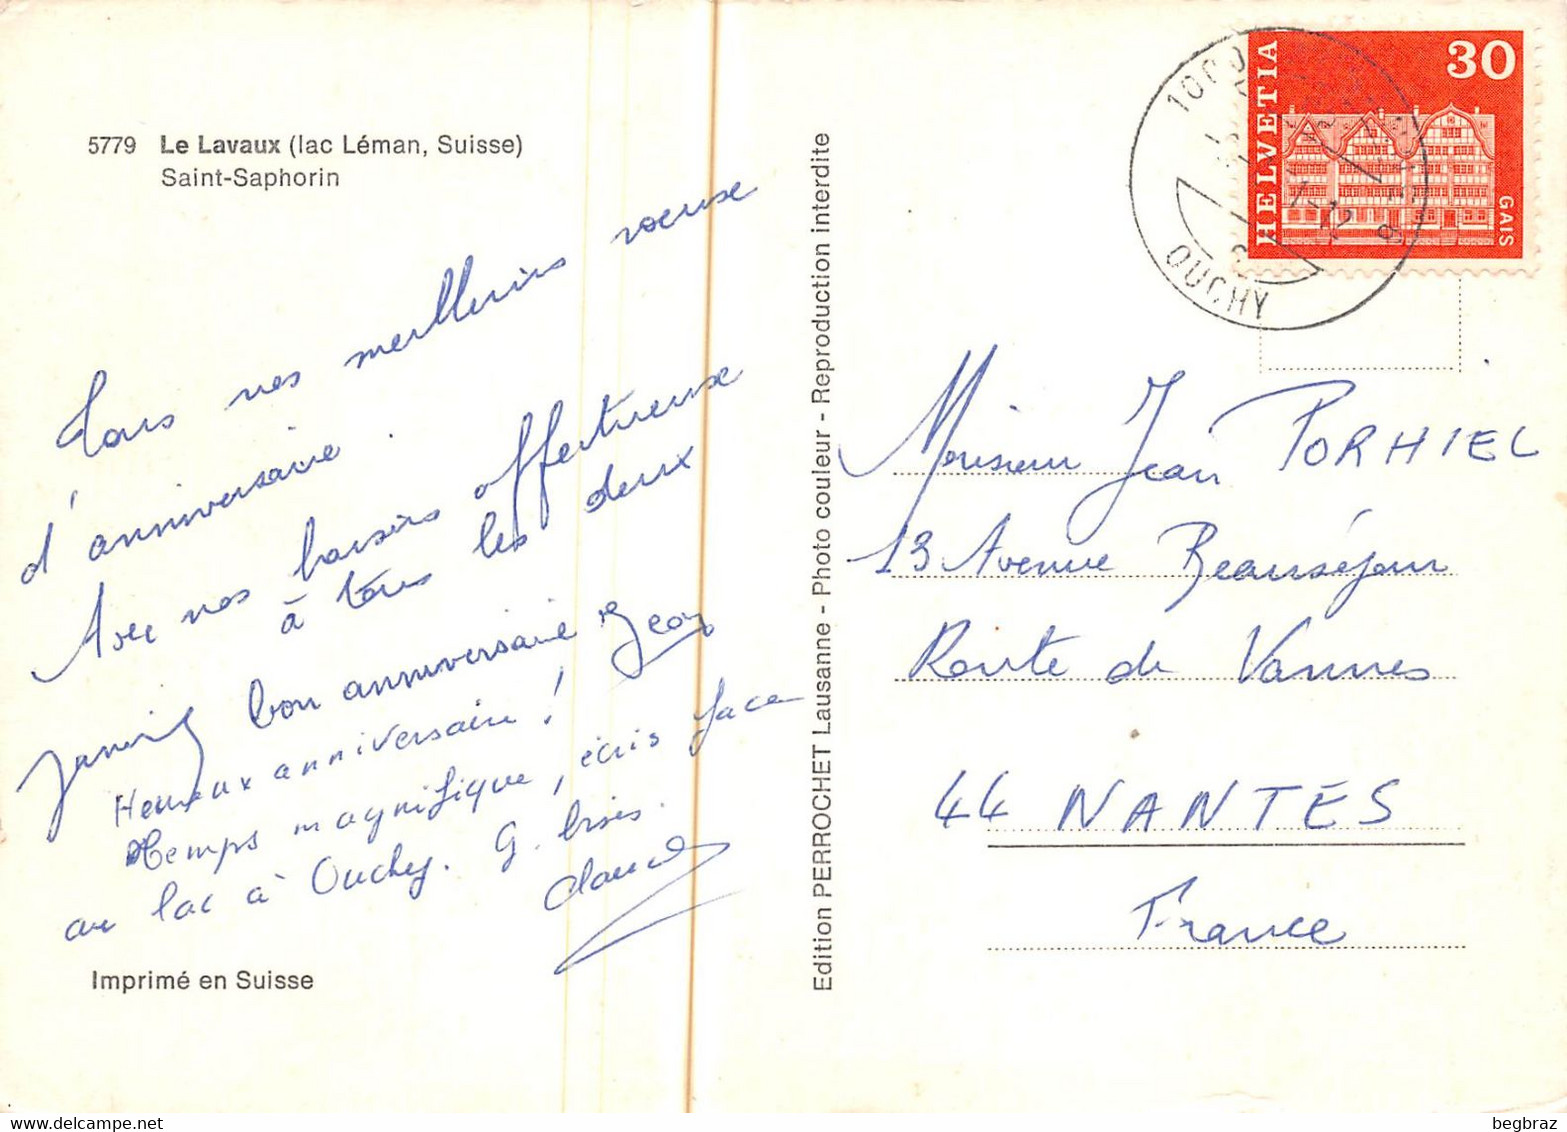 5779 Le Lavaux (lac Léman, Suisse)
Saint-Saphorin
Tous nos meilleurs voeux
d'anniversaire.
Avec nos baisers affectueux
à tous les deux
bon anniversaire Jean
Heureux anniversaire !
temps magnifique, écris face
au lac à Ouchy. G. bises.
Claude
Imprimé en Suisse
Edition PERROCHET Lausanne - Photo couleur - Reproduction interdite
HELVETIA
30
GAIS
1000
OUCHY
Monsieur Jean PORHIEL
13 Avenue Beauséjour
Route de Vannes
44 NANTES
France
delcampe.net
begbraz